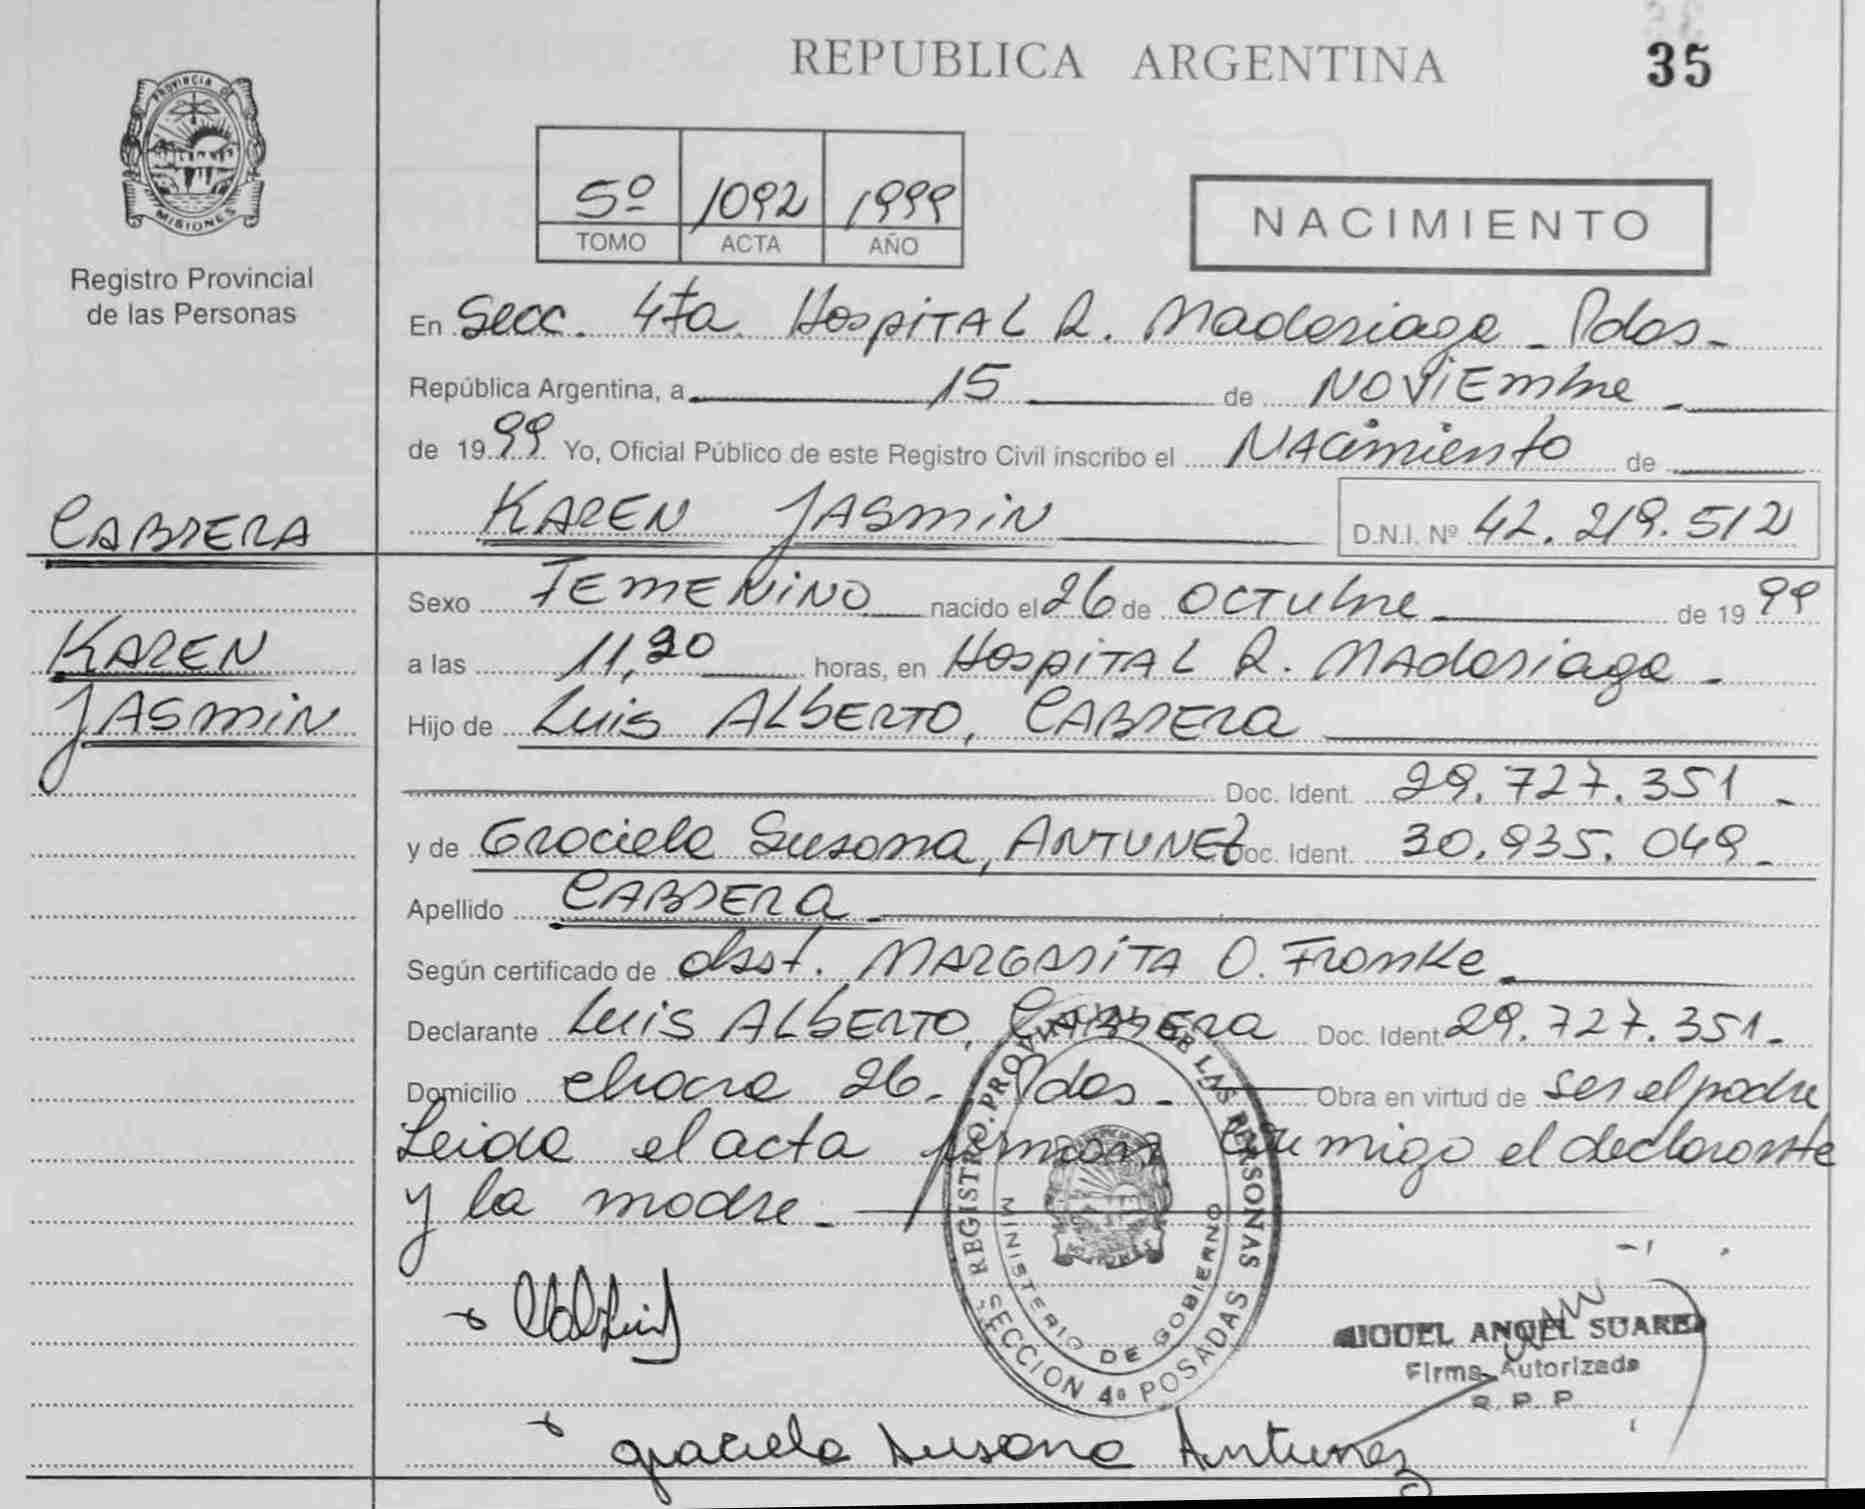 REPUBLICA ARGENTINA
35
PROVINCIA DE
MISIONES
Registro Provincial
de las Personas
5º 1092 1999
TOMO ACTA AÑO
NACIMIENTO
En Secc. 4ta. Hospital R. Madariaga - Pdas-
República Argentina, a 15 de Noviembre
de 1999 Yo, Oficial Público de este Registro Civil inscribo el Nacimiento de
KAREN JASMIN D.N.I. Nº 42.219.512
CABRERA
KAREN
JASMIN
Sexo FEMENINO nacido el 26 de OCTUbre de 1999
a las 11,20 horas, en Hospital R. Madariaga -
Hijo de Luis ALBERTO, CABRERA
Doc. Ident. 29.727.351 -
y de Graciela Susana, ANTUNEZ Doc. Ident. 30.935.049 -
Apellido CABRERA
Según certificado de Obst. MARGARITA O. Franke
Declarante Luis ALBERTO, CABRERA Doc. Ident. 29.727.351-
Domicilio Chacra 26. Pdas - Obra en virtud de ser el padre
Leida el acta firman conmigo el declarante
y la madre -
REGISTRO PROVINCIAL DE LAS PERSONAS
MINISTERIO DE GOBIERNO
SECCION 4ª POSADAS
MIGUEL ANGEL SUAREZ
Firma Autorizada
R. P. P.
graciela Susana Antunez